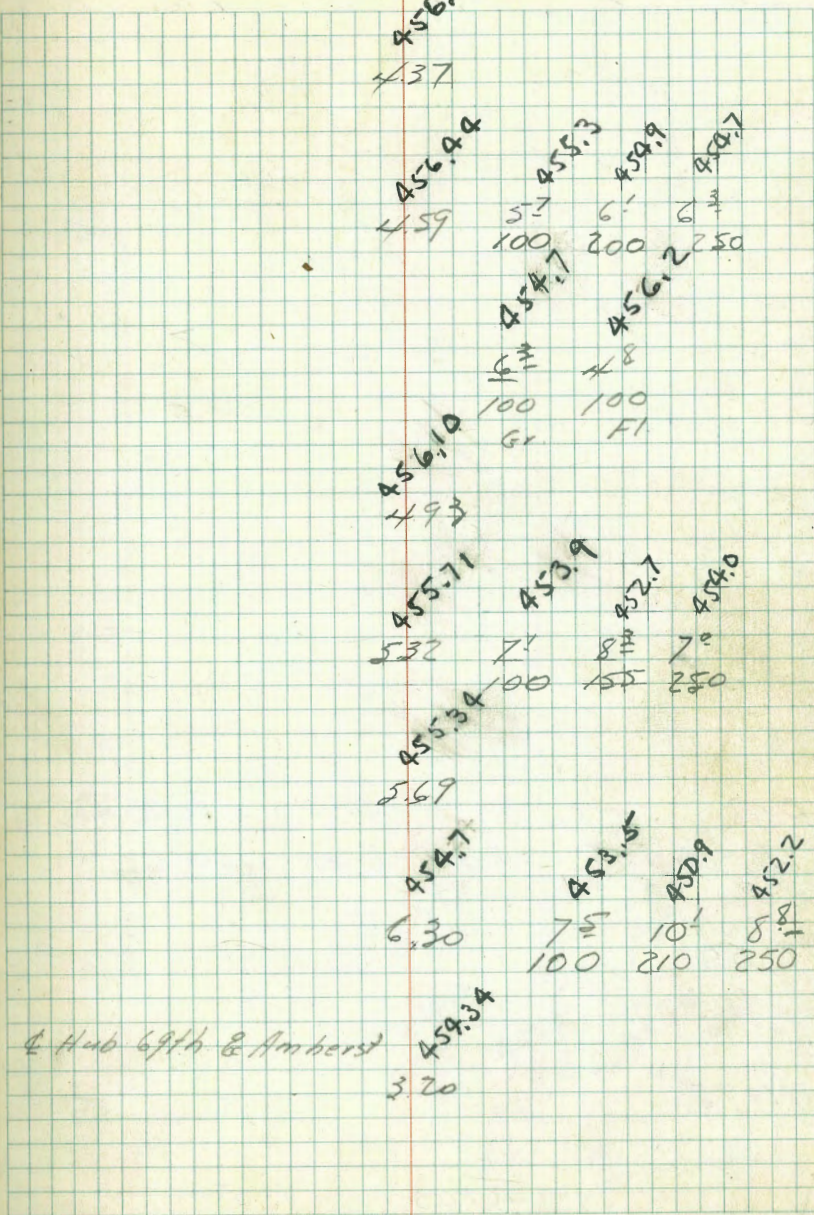 456.
4.37
456.44 455.3 454.9 454.7
4.59 5 7 6 1 6 3
100 200 250
454.7 456.2
6 3 4 8
100 100
Gr Fl
456.10
4.93
455.71 453.9 452.7 454.0
5.32 7 1 8 3 7 0
100 155 250
455.34
5.69
454.7 453.5 450.9 452.2
6.30 7 5 10 1 8.8
100 210 250
℄ Hub 69th & Amherst 454.34
3.20